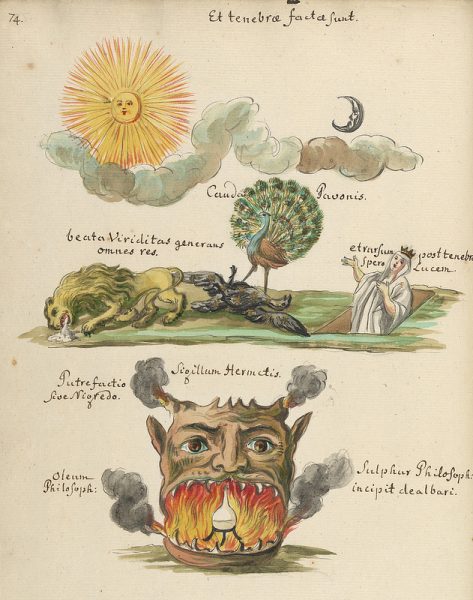 74.
Et tenebræ factæ sunt.
Cauda Pavonis.
beata Viriditas generans
omnes res.
et rursum
spero
post tenebras
Lucem.
Putrefactio
sive Nigredo.
Sigillum Hermetis.
Oleum
Philosoph:
Sulphur Philosoph:
incipit dealbari.